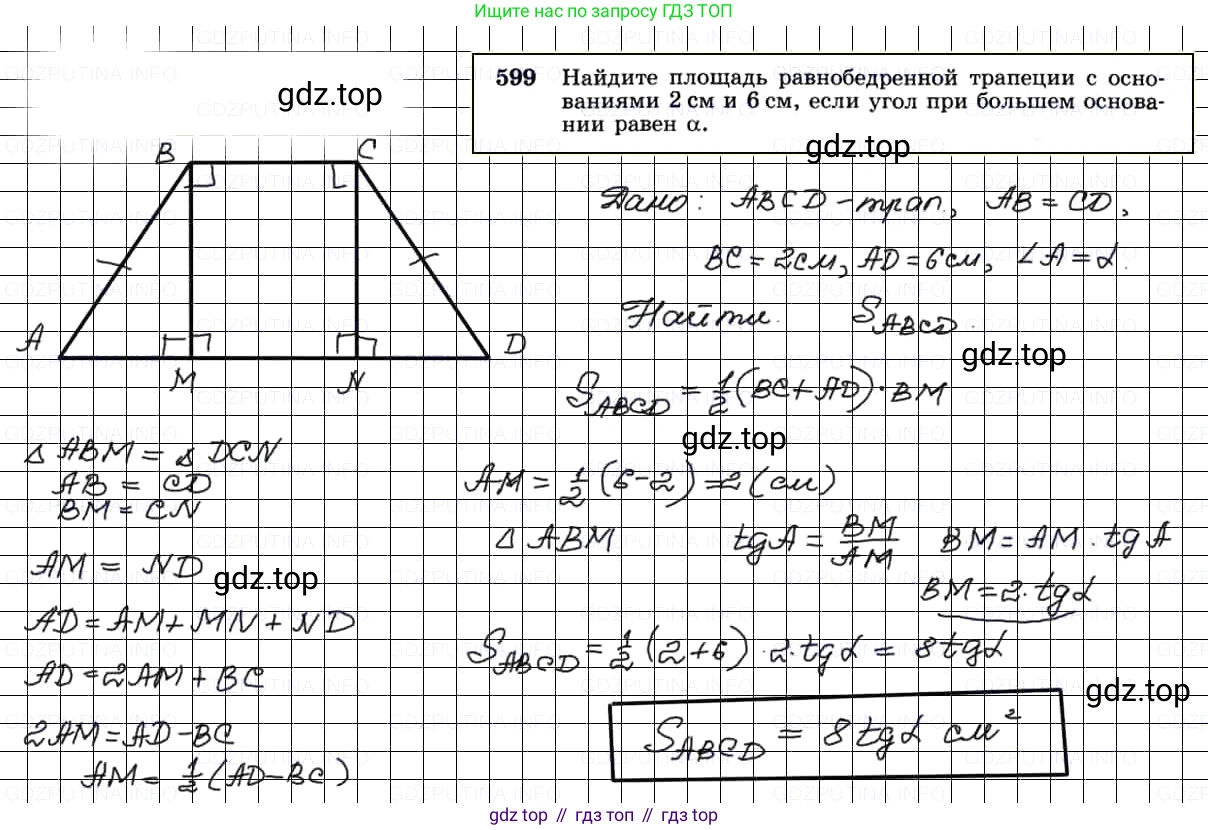 Ищите нас по запросу ГДЗ ТОП
599 Найдите площадь равнобедренной трапеции с осно-
ваниями 2 см и 6 см, если угол при большем основа-
нии равен α.
gdz.top
gdz.top
B C
A D
M N
Дано: ABCD - трап., AB = CD,
BC = 2см, AD = 6см, ∠A = α.
Найти. S_ABCD.
gdz.top
S_ABCD = 1/2 (BC + AD) · BM
gdz.top
△ ABM = △ DCN
AB = CD
BM = CN
AM = ND
gdz.top
AD = AM + MN + ND
AD = 2AM + BC
2AM = AD - BC
AM = 1/2 (AD - BC)
AM = 1/2 (6-2) = 2 (см)
△ ABM tgA = BM/AM BM = AM · tgA
BM = 2 · tgα
S_ABCD = 1/2 (2+6) · 2 · tgα = 8tgα
gdz.top
S_ABCD = 8tgα см²
gdz top // гдз топ // gdz top